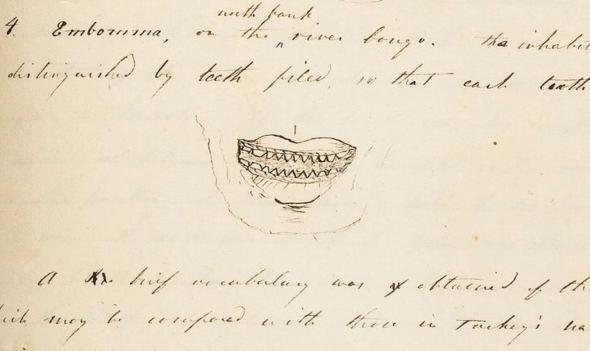 north bank
4. Embomma, on the river Congo. the inhabit
distinguished by teeth filed, so that each tooth
A brief vocabulary was obtained of th
hich may be compared with those in Tuckey's na